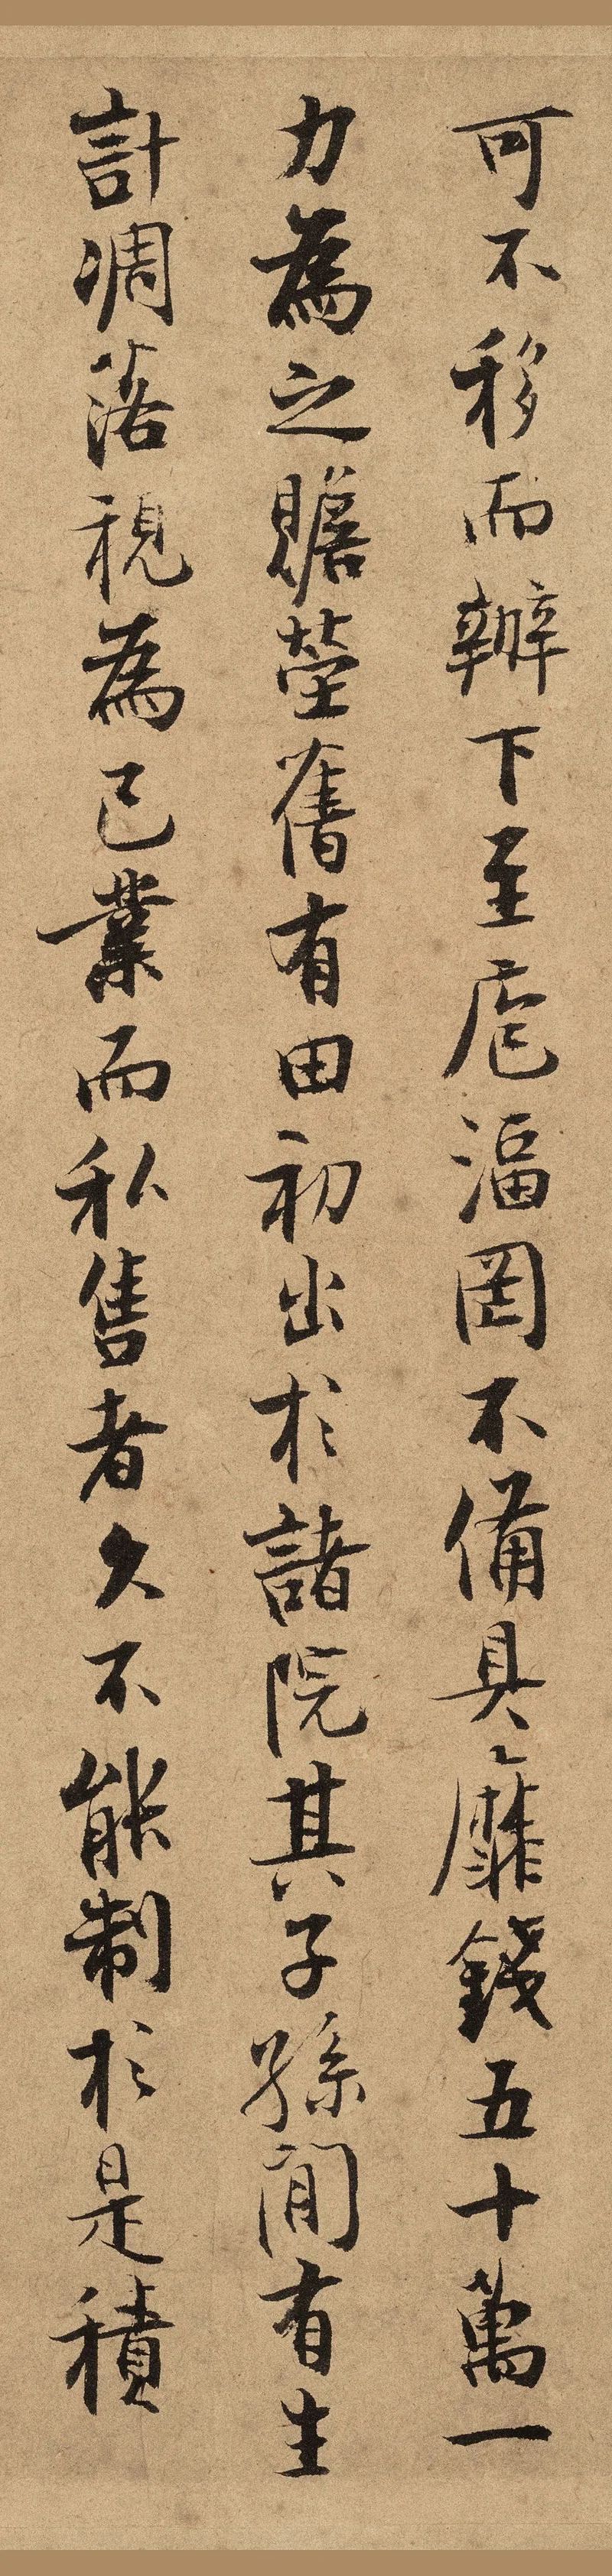 可不移而辦下至庖湢罔不備具靡錢五十萬一
力為之贍塋舊有田初出於諸院其子孫間有生
計凋落視為己業而私售者久不能制於是積